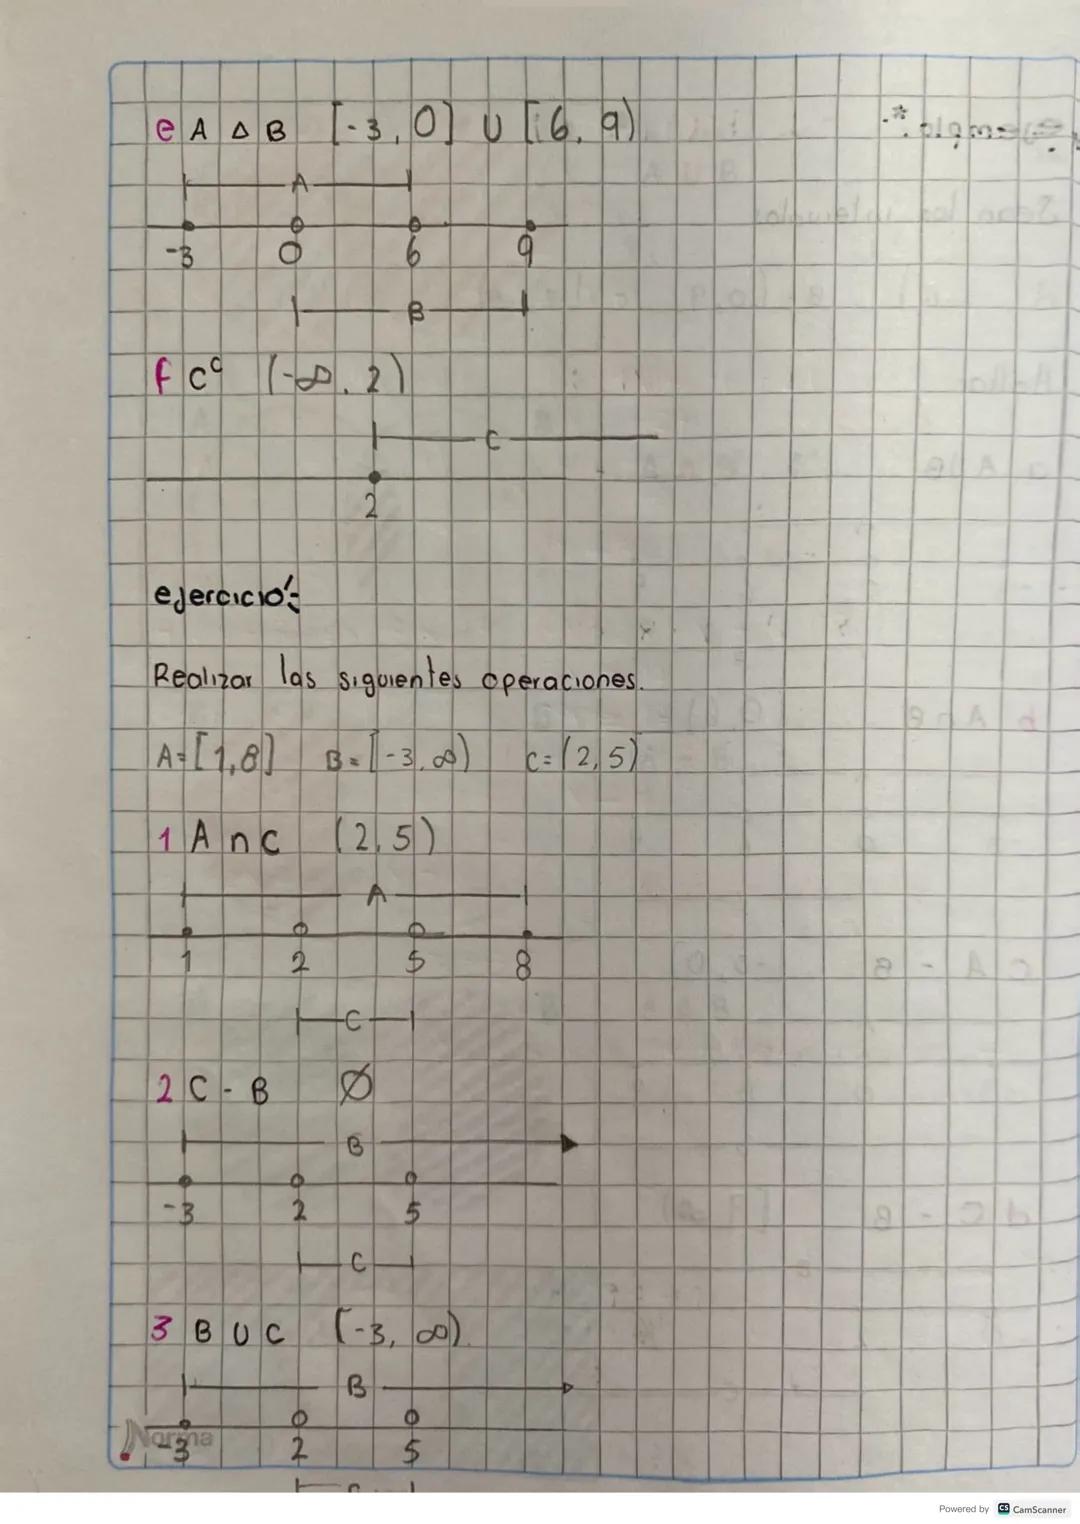 e A Δ B [-3, 0] ∪ [6, 9)
A
-3 0 6 9
B
f Cᶜ (-∞, 2)
C
2
ejercicio:
Realizar las siguientes operaciones.
A=[1,8] B=[-3,∞) C=(2,5)
1 A ∩ C (2,5)
A
1 2 5 8
C
2 C - B Ø
B
-3 2 5
C
3 B ∪ C [-3, ∞).
B
-3 2 5
Norma
Powered by CS CamScanner